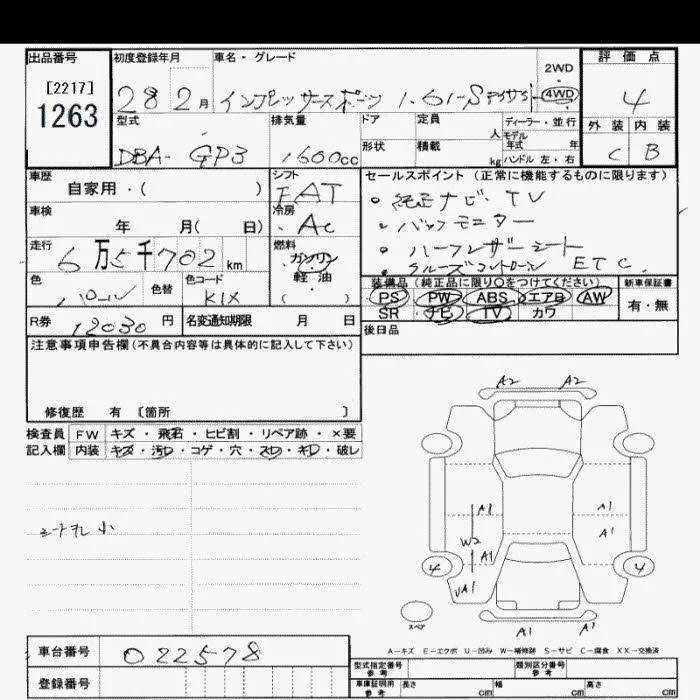 出品番号
[2217]
1263
初度登録年月 車名・グレード
28 2月 インプレッサスポーツ 1.6i-S
2WD
4WD
評価点
4
外装 内装
C B
型式 排気量
DBA- GP3 1600cc
ドア 定員 人
形状 積載 kg
ディーラー・並行
モデル年式 年
ハンドル 左・右
車歴 シフト
自家用・( ) FAT
車検 冷房
年 月( 日) AC
走行 燃料
6万5千702km ガソリン
軽油
( )
色 色替 色コード
パール K1X
R券 12030円 名変通知期限 月 日
セールスポイント(正常に機能するものに限ります)
・純正ナビ・TV
・バックモニター
・ハーフレザーシート
・クルーズコントロール ETC
装備品(純正品に限り○をつけてください) 新車保証書
PS PW ABS エアB AW 有・無
SR ナビ TV カワ
後日品
注意事項申告欄(不具合内容等は具体的に記入して下さい)
修復歴 有 〔箇所 〕
検査員 FW キズ・飛石・ヒビ割・リペア跡・×要
記入欄 内装 キズ・汚レ・コゲ・穴・スレ・キレ・破レ
シート穴小
A2 A2
A1 A1
W2 A1
A1
4 4
UA1
A1 A1
スペア
A-キズ E-エクボ U-凹み W-補修跡 S-サビ C-腐食 XX-交換済
車台番号 022578
登録番号
型式指定番号参考 類別区分番号参考
車庫証明用参考 長さ cm 幅 cm 高さ cm